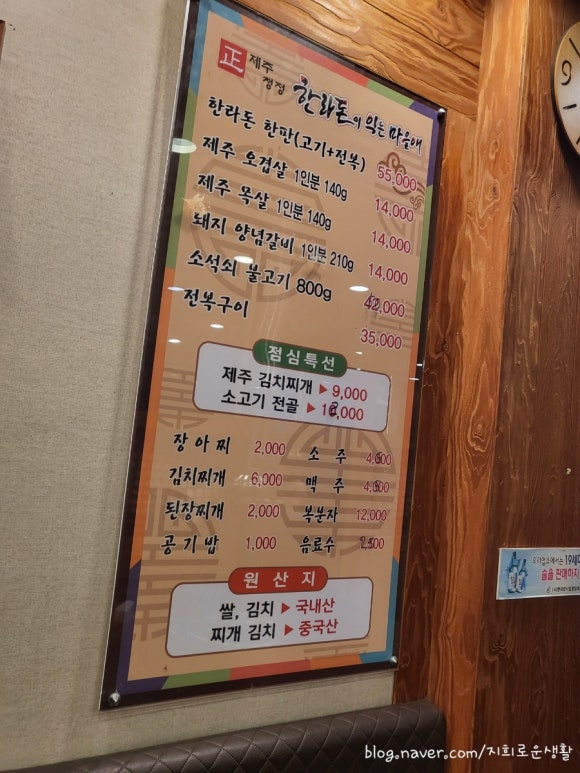 正 제주
정정
한라돈이 익는 마음애
한라돈 한판(고기+전복) 55,000
제주 오겹살 1인분 140g 14,000
제주 목살 1인분 140g 14,000
돼지 양념갈비 1인분 210g 14,000
소석쇠 불고기 800g 42,000
전복구이 35,000
점심특선
제주 김치찌개 ▶ 9,000
소고기 전골 ▶
장아찌 2,000 소주
김치찌개 6,000 맥주
된장찌개 2,000 복분자 12,000
공기밥 1,000 음료수
원산지
쌀, 김치 ▶ 국내산
찌개 김치 ▶ 중국산
19세
술을 판매하지
blog.naver.com/지희로운생활